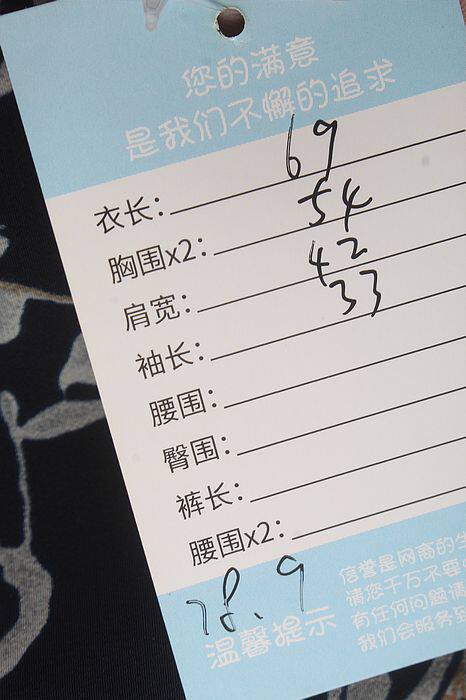 您的满意
是我们不懈的追求
衣长: 69
胸围x2: 54
肩宽: 42
袖长: 33
腰围:
臀围:
裤长:
腰围x2:
78.9
温馨提示
信誉是网商的生
请您千万不要
有任何问题请
我们会服务到